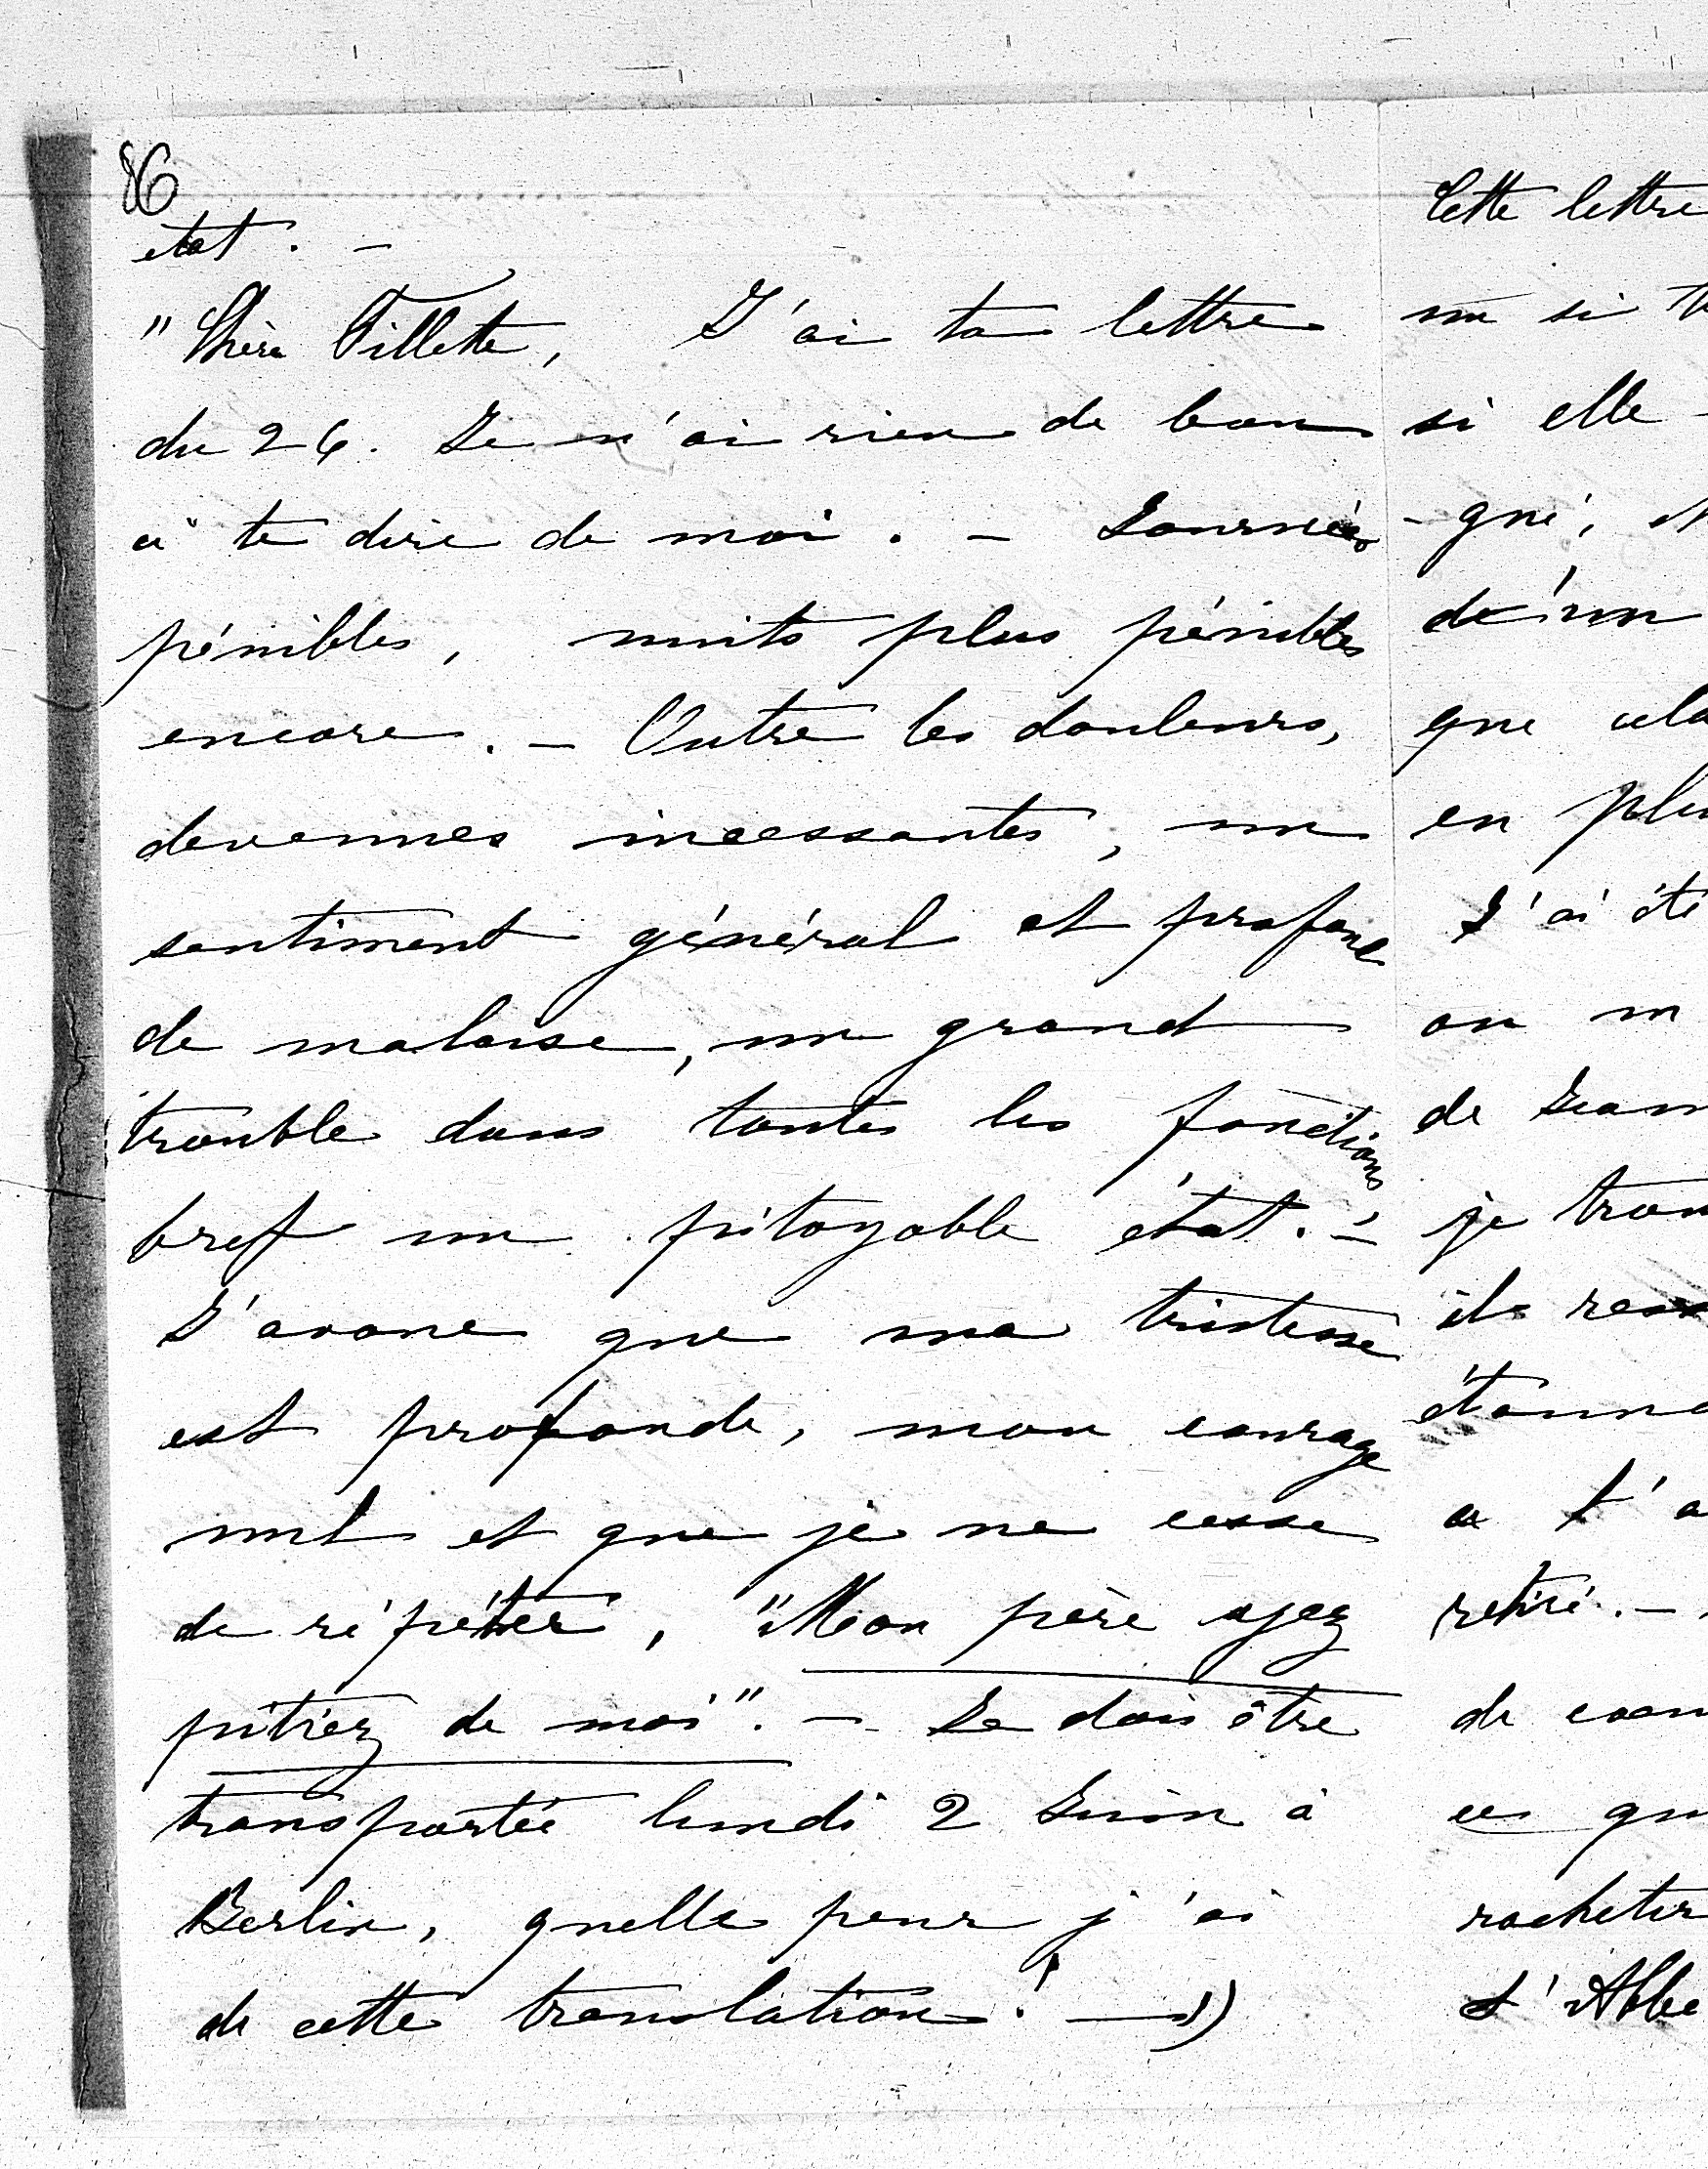 86
état. -
"Chère Fillette, J'ai ta lettre
du 26. Je n'ai rien de bon
à te dire de moi. - Journées
pénibles, nuits plus pénibles
encore. - Outre les douleurs,
devenues incessantes, un
sentiment général et profond
de malaise, un grand
trouble dans toutes les fonctions
bref un pitoyable état. -
J'avoue que ma tristesse
est profonde, mon courage
nul et que je ne cesse
de répéter, "Mon père ayez
pitiez de moi". - Je dois être
transportée lundi 2 Juin à
Berlin, quelle peur j'ai
de cette translation! - ")
Cette lettre
un si
si elle
- gné,
que cela
en
J'ai été
on m
de
je
ils
a t'a
retiré. -
de
ces
racheter
L'Abbé